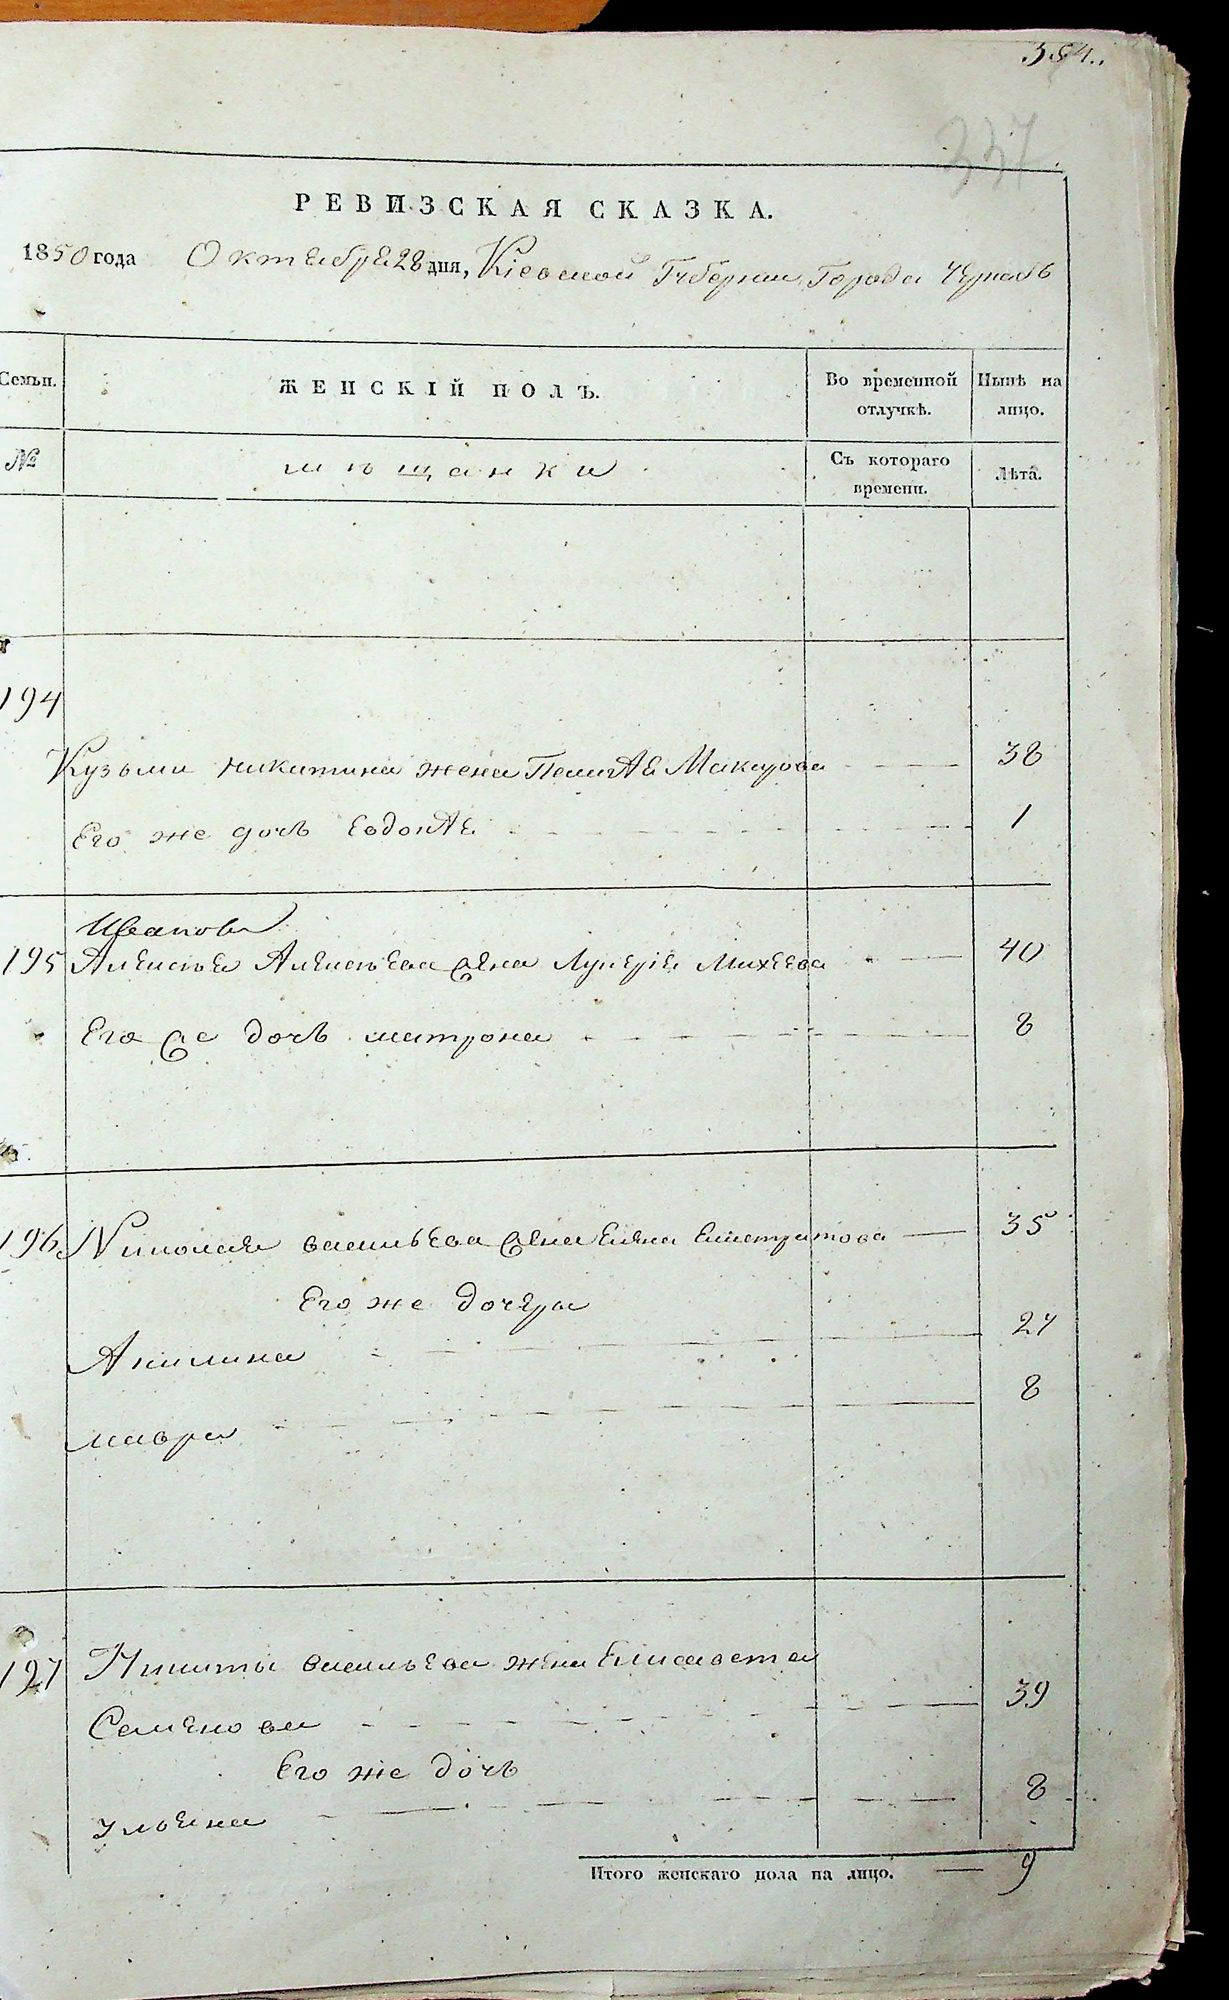 354.
337
РЕВИЗСКАЯ СКАЗКА.
1850 года Октебре 28 дня, Кіевской Губернии Города
Семьи. ЖЕНСКІЙ ПОЛЪ. Во временной отлучкѣ. Нынѣ на лицо.
№ мѣщанки Съ котораго времени. Лѣта.
194
Кузьмы Никитина жена Пелагѣе Макарова 38
Его же дочь Евдокѣе 1
Иванов
195 Алексѣе Алексѣева жена Лукерѣе Михеева 40
Его же дочь Матрона 8
196 Николае Васильева жена Елена Елистратова 35
Его же дочери
Акилина 24
Мавра 8
197 Никиты Васильева жена Елисавета
Семенова 39
Его же дочь
Ульена 8
Итого женскаго пола на лицо. 9